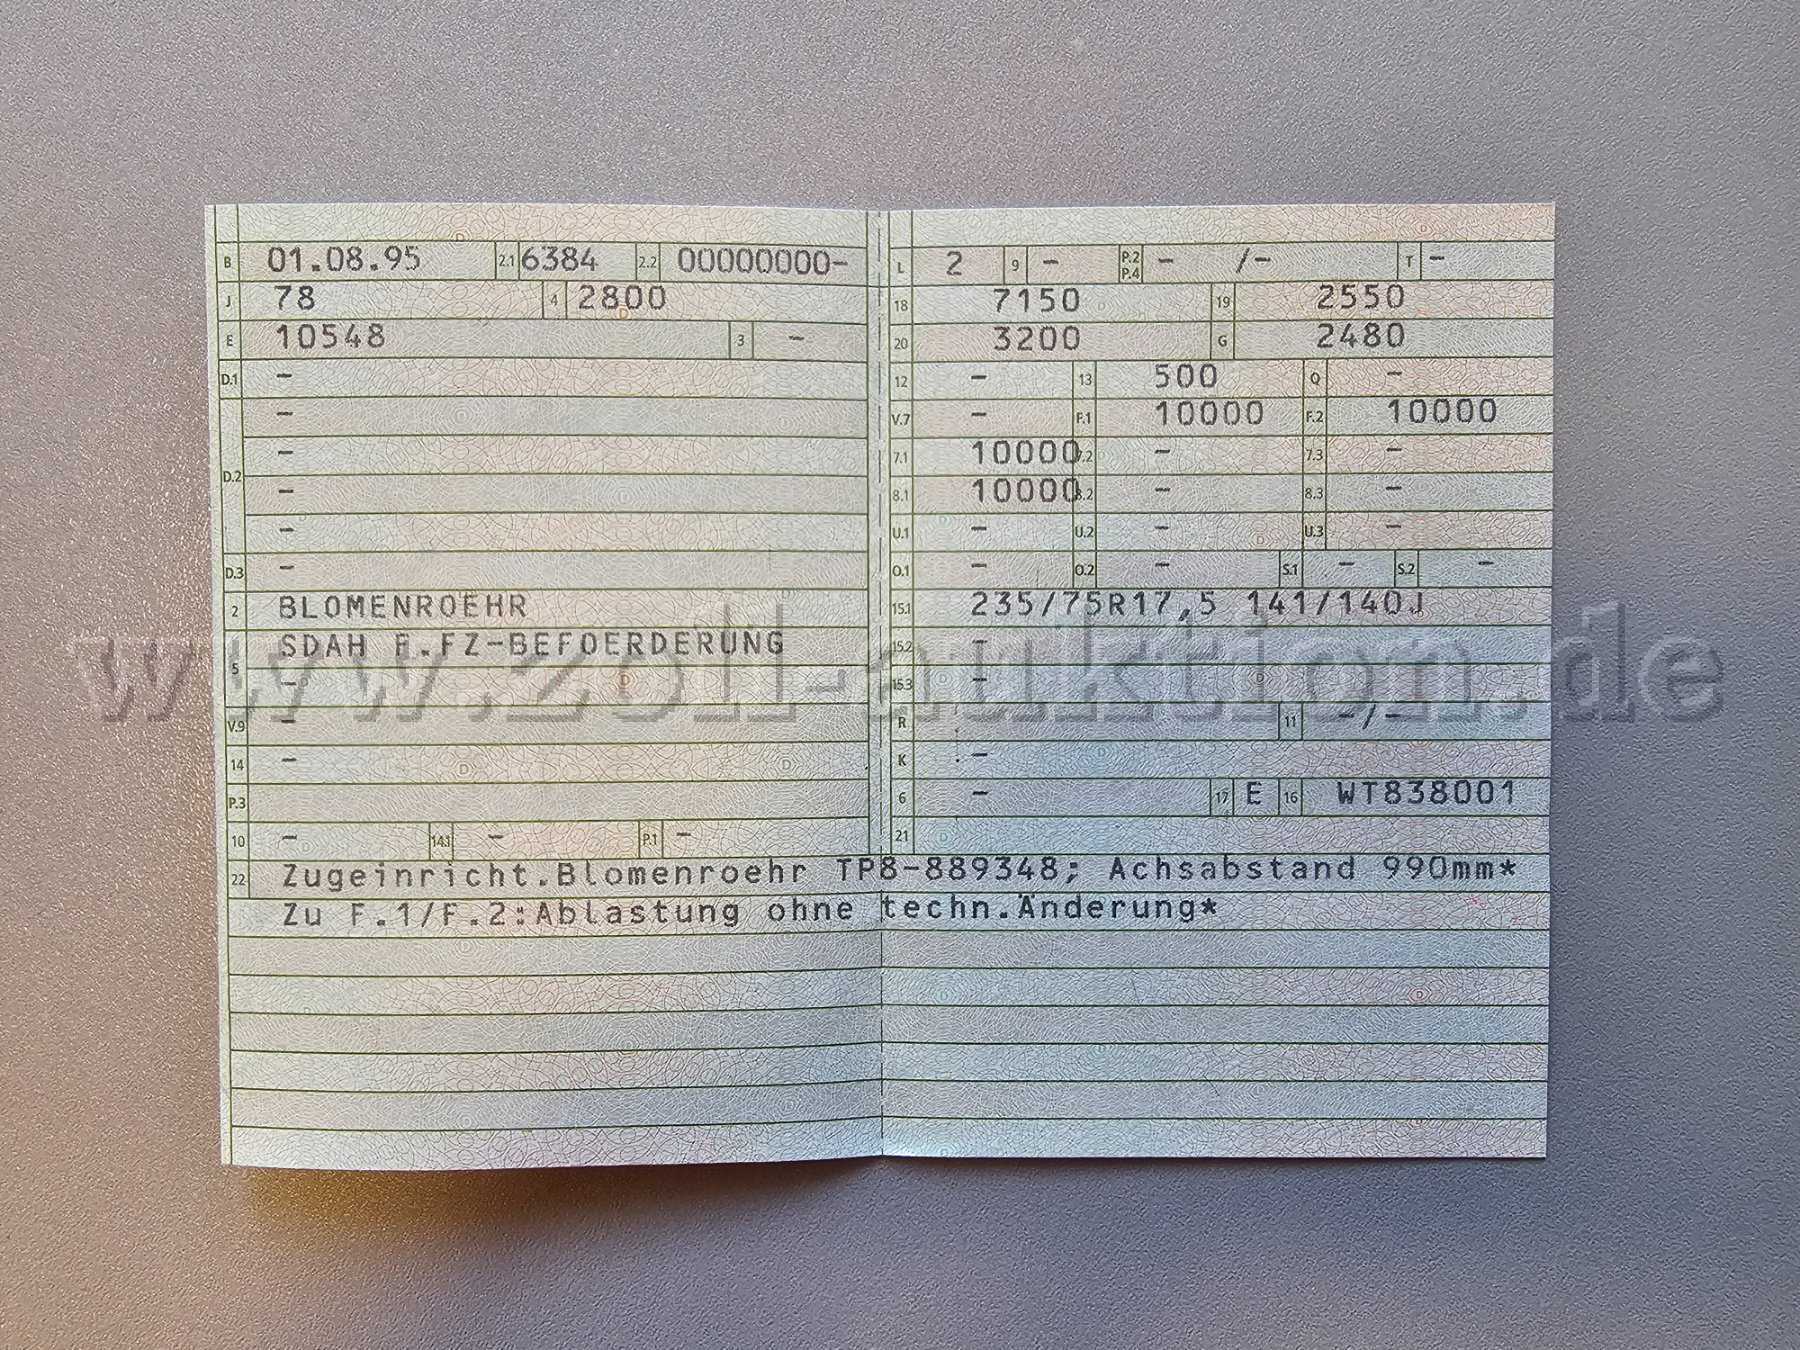 B 01.08.95 2.1 6384 2.2 00000000-
J 78 4 2800
E 10548 3 -
D.1 -
-
D.2 -
-
-
D.3 -
2 BLOMENROEHR
5 SDAH F.FZ-BEFOERDERUNG
-
V.9 -
14 -
P.3
10 - 14.1 - P.1 -
L 2 9 - P.2 P.4 - /- T -
18 7150 19 2550
20 3200 G 2480
12 - 13 500 Q -
V.7 - F.1 10000 F.2 10000
7.1 10000 7.2 - 7.3 -
8.1 10000 8.2 - 8.3 -
U.1 - U.2 - U.3 -
O.1 - O.2 - S.1 - S.2 -
15.1 235/75R17,5 141/140J
15.2 -
15.3 -
R 11 -/-
K -
6 - 17 E 16 WT838001
21
22 Zugeinricht.Blomenroehr TP8-889348; Achsabstand 990mm*
Zu F.1/F.2:Ablastung ohne techn.Änderung*
www.zoll-auktion.de